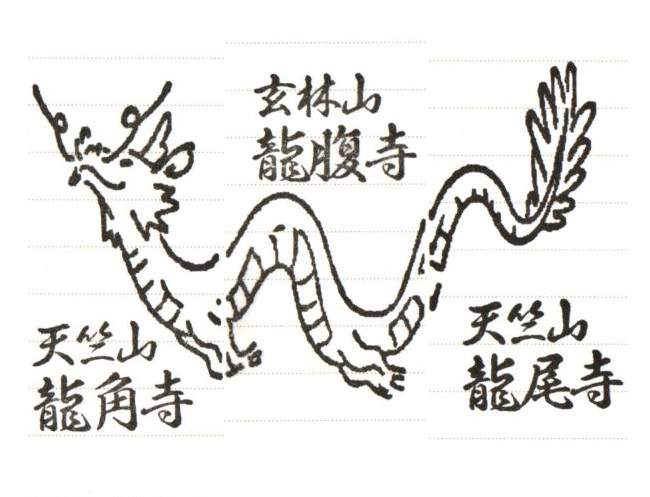 天竺山
龍角寺
玄林山
龍腹寺
天竺山
龍尾寺